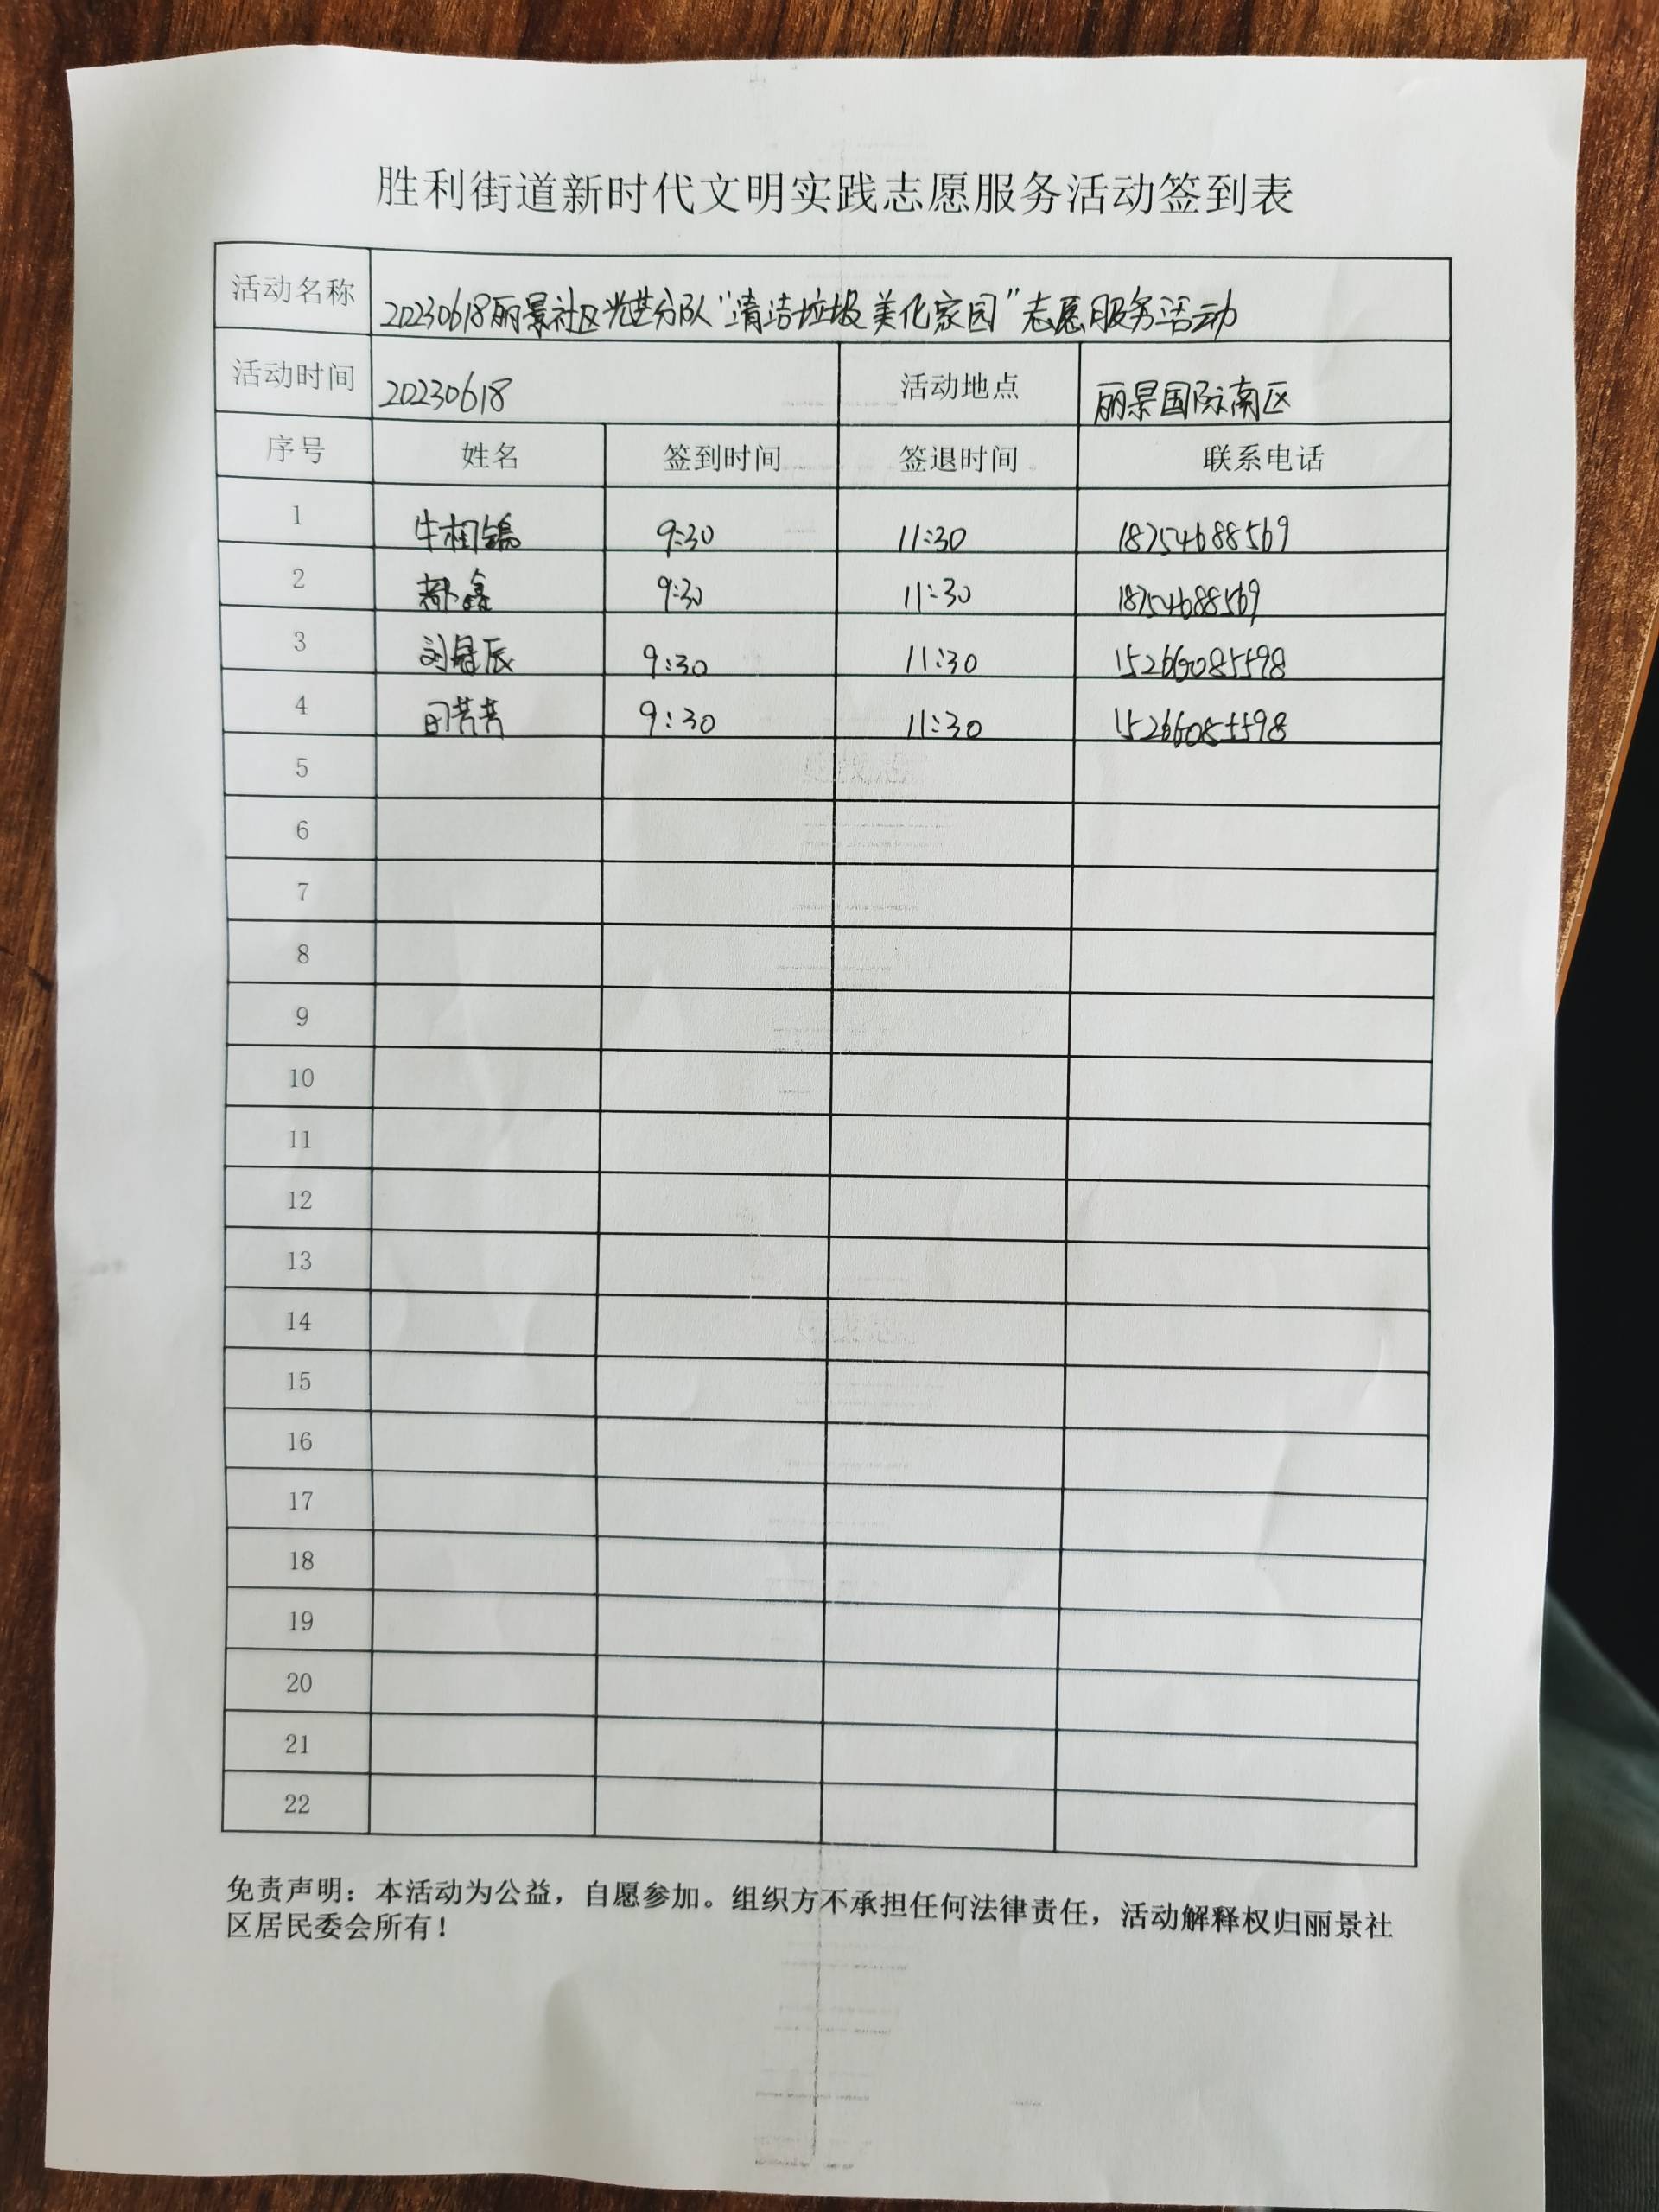 胜利街道新时代文明实践志愿服务活动签到表
活动名称 20230618丽景社区光芒分队“清洁垃圾美化家园”志愿服务活动
活动时间 20230618 活动地点 丽景国际南区
序号 姓名 签到时间 签退时间 联系电话
1 牛相镐 9:30 11:30 18754688569
2 郝鑫 9:30 11:30 18754688569
3 刘冠辰 9:30 11:30 15266085598
4 田芳芳 9:30 11:30 15266085598
5
6
7
8
9
10
11
12
13
14
15
16
17
18
19
20
21
22
免责声明：本活动为公益，自愿参加。组织方不承担任何法律责任，活动解释权归丽景社
区居民委会所有！